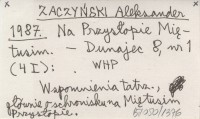 ZACZYŃSKI Aleksander
1987. Na Przysłopie Mię-
tusim. – Dunajec 8, nr 1
(4 I): . WHP
Wspomnienia tatrz.,
głównie o schronisku na Miętusim
Przysłopie.